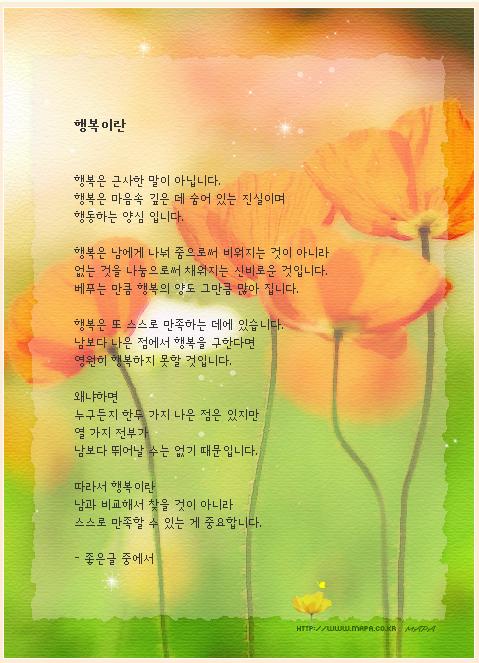 행복이란
행복은 근사한 말이 아닙니다.
행복은 마음속 깊은 데 숨어 있는 진실이며
행동하는 양심 입니다.
행복은 남에게 나눠 줌으로써 비워지는 것이 아니라
없는 것을 나눔으로써 채워지는 신비로운 것입니다.
베푸는 만큼 행복의 양도 그만큼 많아 집니다.
행복은 또 스스로 만족하는 데에 있습니다.
남보다 나은 점에서 행복을 구한다면
영원히 행복하지 못할 것입니다.
왜냐하면
누구든지 한두 가지 나은 점은 있지만
열 가지 전부가
남보다 뛰어날 수는 없기 때문입니다.
따라서 행복이란
남과 비교해서 찾을 것이 아니라
스스로 만족할 수 있는 게 중요합니다.
- 좋은글 중에서
HTTP://WWW.MAPA.CO.KR MAPA